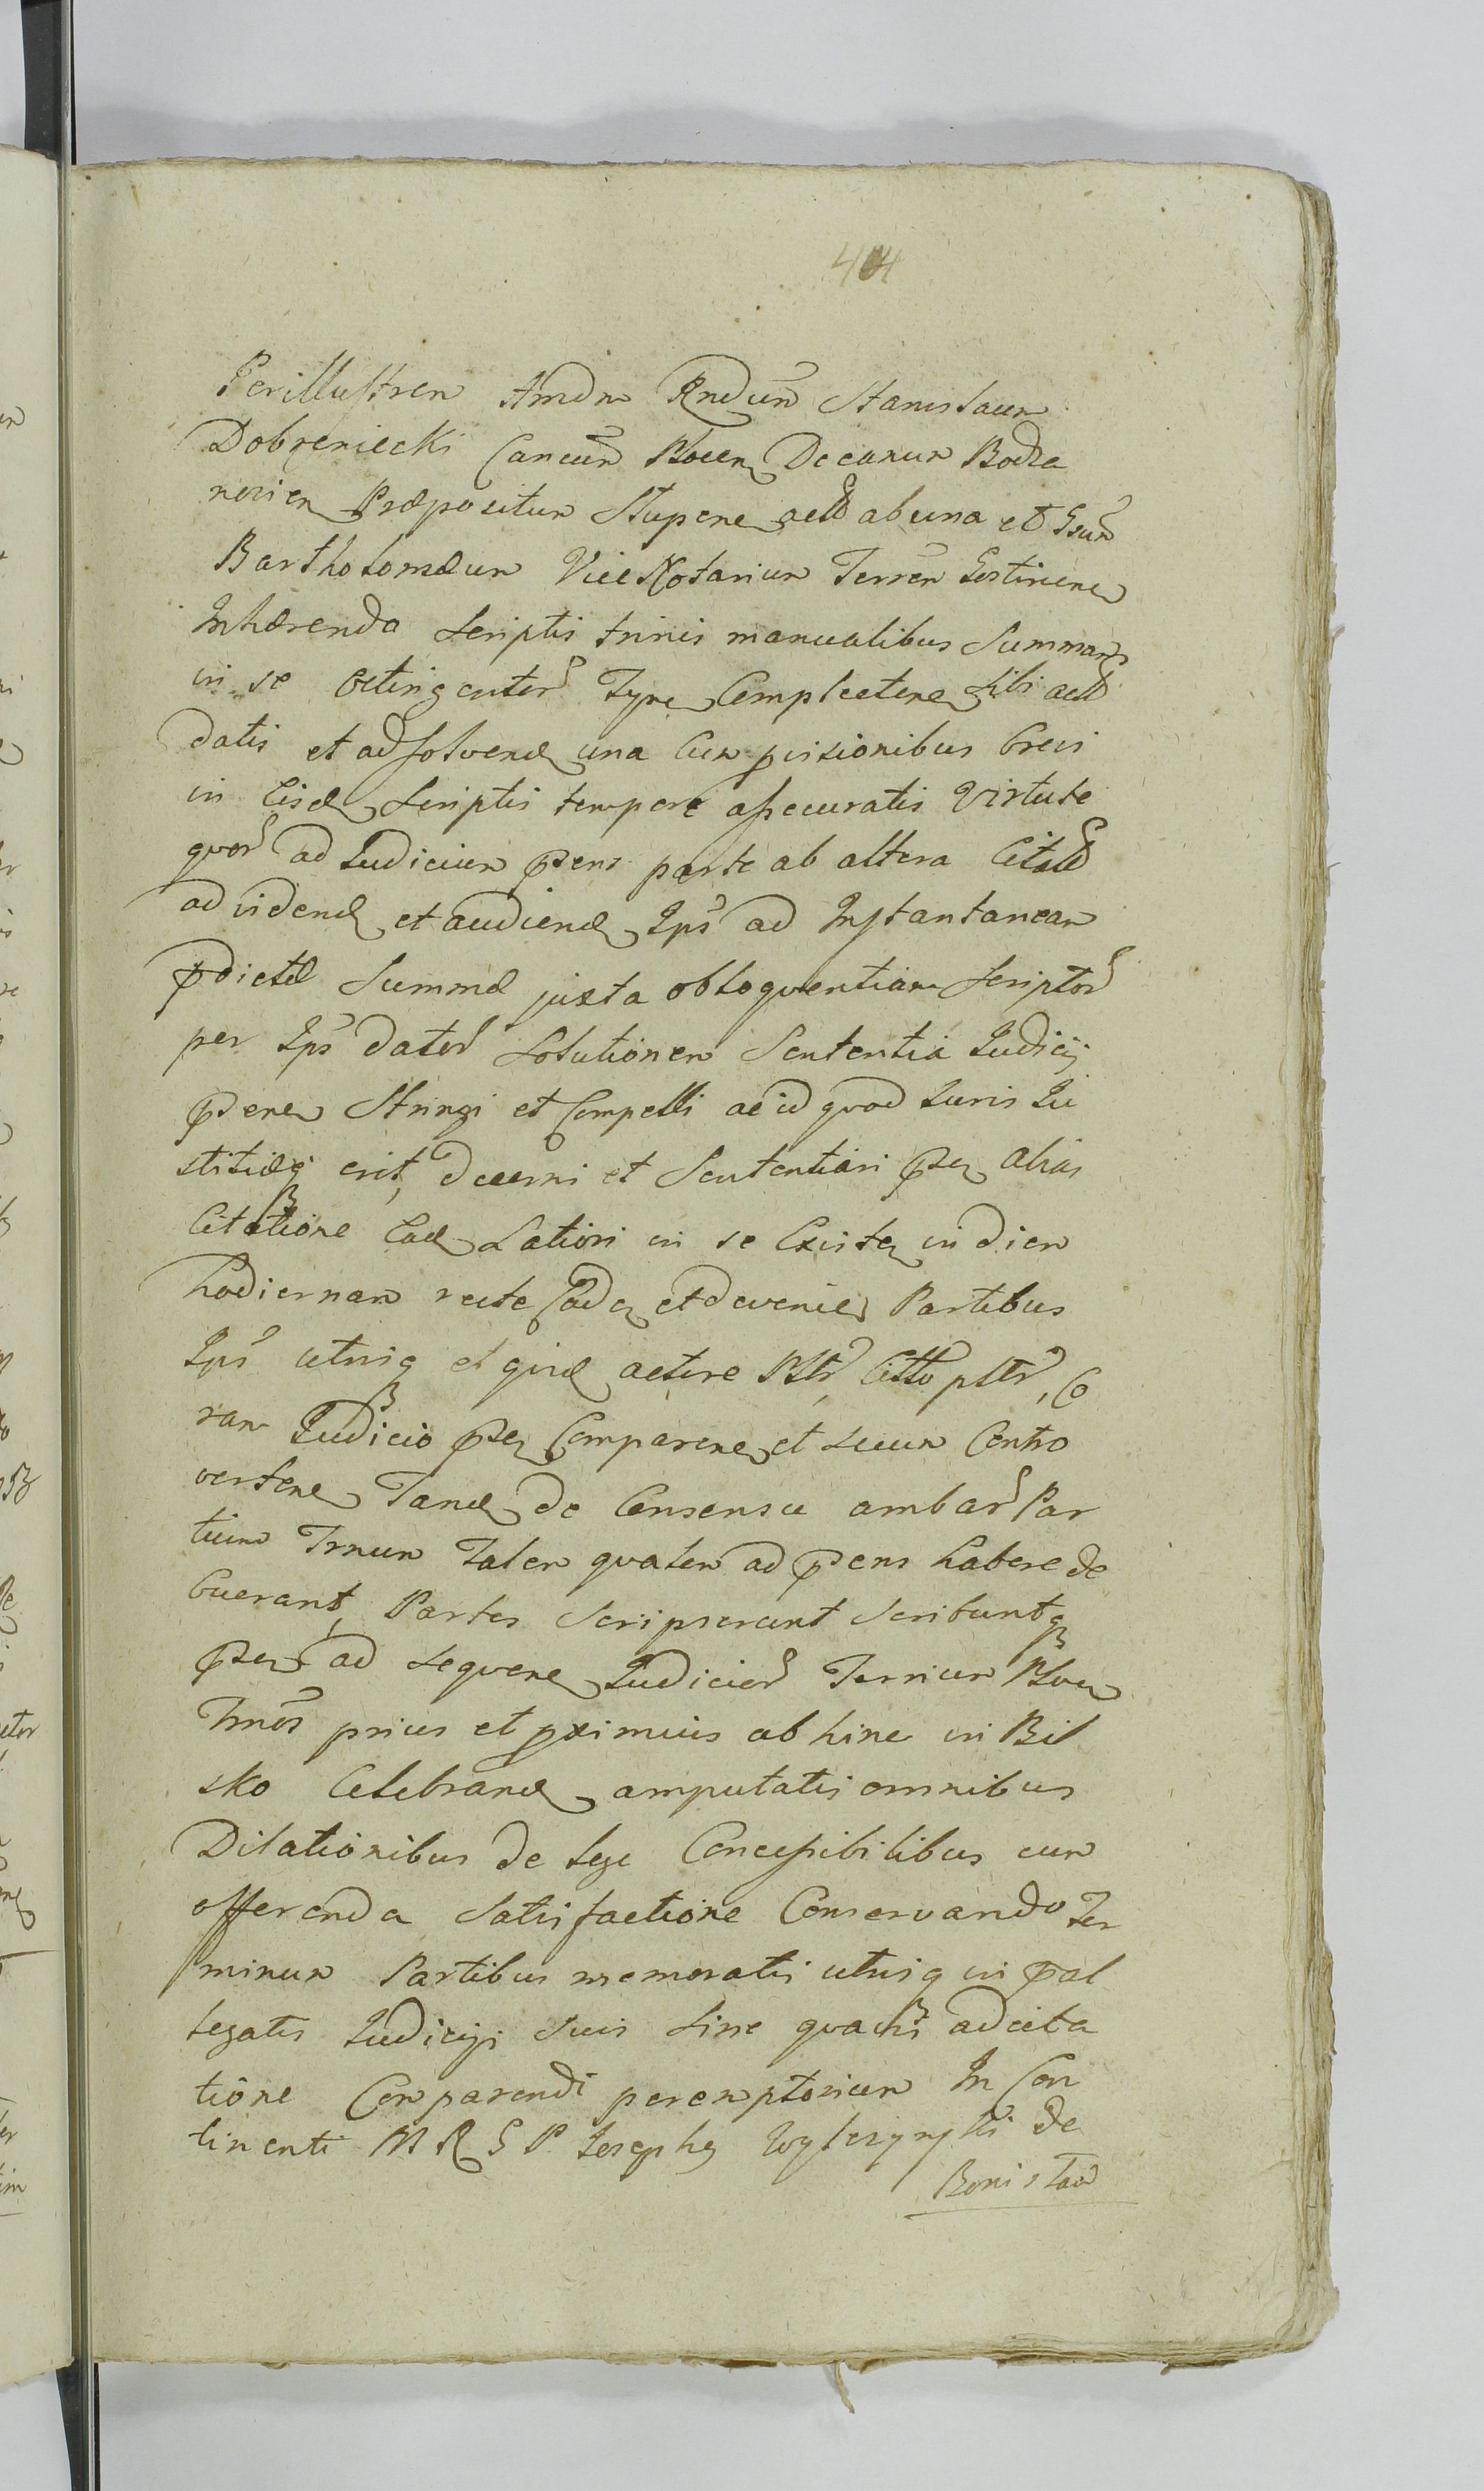 404
Perillustren Amdm Rndum Stanislaum
Dobrzeniecki Cancum Plocen Decanum Bodza
novien Præpositum Slupene actt ab una et Gsum
Bartholomæum ViceNotarium Terren Gostinene
Inhærendo Scriptis trinis manualibus Summam
in se Complectene sibi actt
datis et adsolvend una Cum pvisionibus brevi
in Eisd Scriptis tempore assecuratis Virtute
quor ad Judicium pens parte ab altera Citatt
ad vidend et audiend Ips ad Instantanean
pdictæ Summæ juxta obloquentiam Scriptor
per Ips dator Solutionem Sententia Judicij
psene Stringi et Compelli ac id quod Juris Ju
stitiæq erit, decerni et Sententiari pse alias
Citatione Ead Latiori in se Existe in diem
hodiernam recte Cade et devenie Partibus
Ips utrisq et quid actore Pltr, Citto pltr, Co
ram Judicio pse Comparene et Secum Contro
vertene Tand de Consensu ambar Par
tium Trnum Talem qualem ad psens habere de
buerant, Partes Scripserunt Scribuntq
pse ad sequene Judicior Terrium Ploce
Trnos prius et pximius ab hinc in Biel
sko Celebrand amputatis omnibus
Dilationibus de Lege Concessibilibus cum
offerenda Satisfactione Conservando Ter
minum Partibus memoratis utrisq in pal
legatis Judicijs Suis Sine quavis adcita
tione Comparendi peremptorium In Con
tinenti M R G P. Josephg de